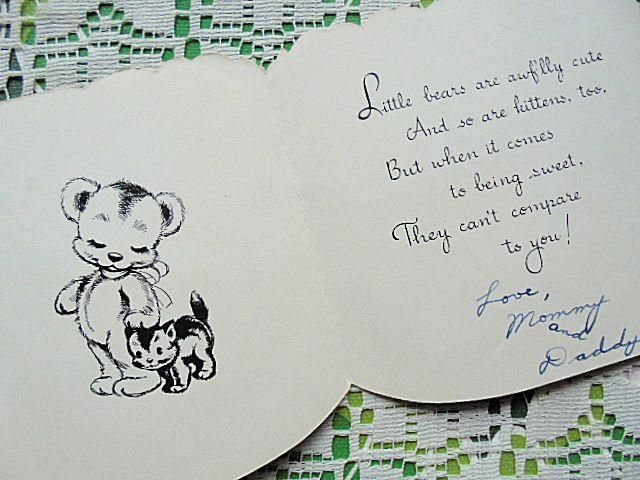 Little bears are awf'lly cute
And so are kittens, too,
But when it comes
to being sweet,
They can't compare
to you!
Love,
Mommy
and
Daddy